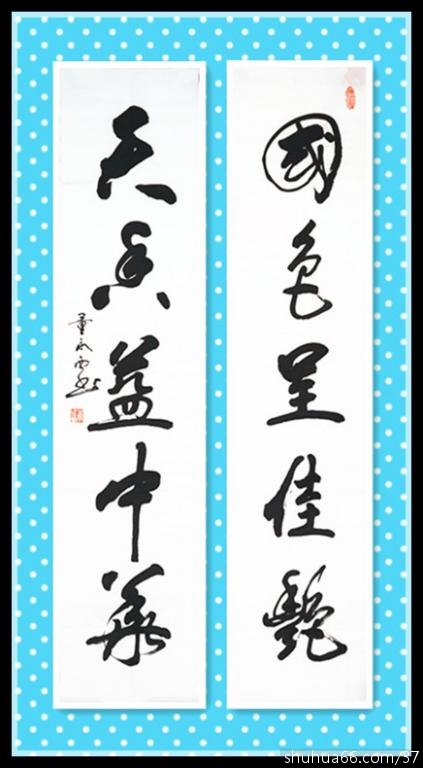 國色呈佳艷
天香蓋中華
shuhua66.com/37